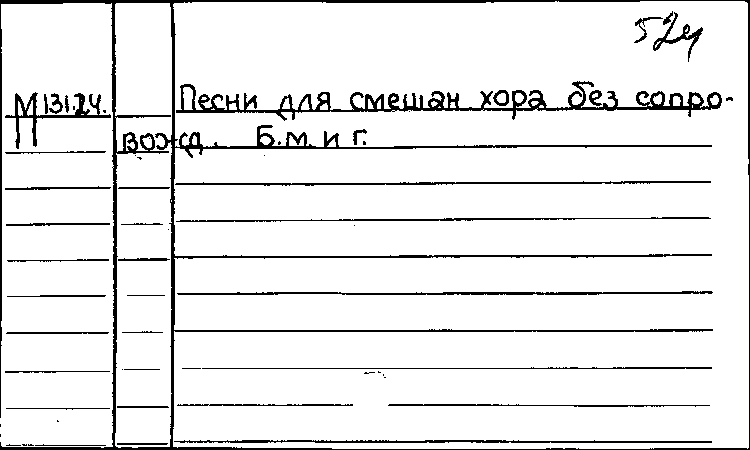 М131.24. Песни для смешан хора без сопро-
вожд. Б.м. и г.